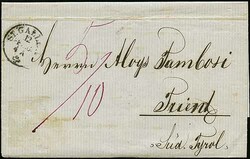 ST GALLEN
Herrn Aloys Tambosi
Trient
Süd. Tyrol.
10